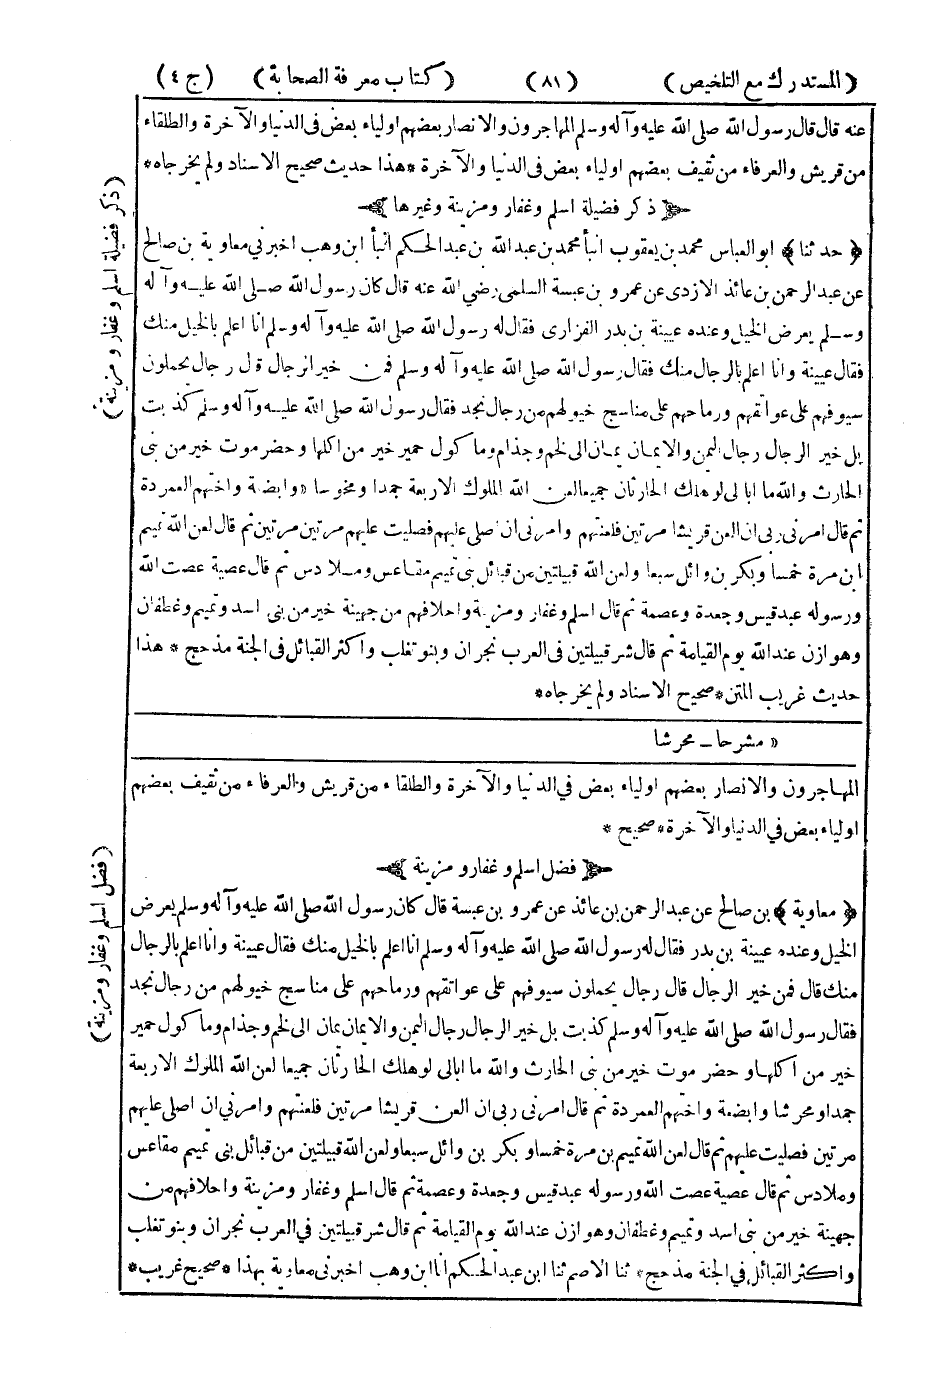 (المستدرك مع التلخيص) (٨١) (كتاب معرفة الصحابة) (ج ٤)
عنه قال قال رسول الله صلى الله عليه وآله وسلم المهاجرون والانصار بعضهم اولياء بعض فى الدنيا والآخرة والطلقاء
من قريش والعرفاء من ثقيف بعضهم اولياء بعض فى الدنيا والآخرة * هذا حديث صحيح الاسناد ولم يخرجاه *
ذكر فضيلة اسلم وغفار ومزينة وغيرها
(ذكر فضيلة اسلم وغفار ومزينة)
﴿ حدثنا ﴾ ابو العباس محمد بن يعقوب انبأ محمد بن عبد الله بن عبد الحكم انبأ ابن وهب اخبرنى معاوية بن صالح
عن عبد الرحمن بن عائذ الازدى عن عمرو بن عبسة السلمى رضي الله عنه قال كان رسول الله صلى الله عليه وآله
وسلم يعرض الخيل وعنده عيينة بن بدر الفزارى فقال له رسول الله صلى الله عليه وآله وسلم انا اعلم بالخيل منك
فقال عيينة وانا اعلم بالرجال منك فقال رسول الله صلى الله عليه وآله وسلم فمن خير الرجال قال رجال يحملون
سيوفهم على عواتقهم ورماحهم على مناسج خيولهم من رجال نجد فقال رسول الله صلى الله عليه وآله وسلم كذبت
بل خير الرجال رجال اليمن والايمان يمان الى لخم وجذام وماكول حمير خير من اكلها وحضر موت خير من بنى
الحارث والله ما ابالى لو هلك الحارثان جميعا لعن الله الملوك الاربعة جمدا ومخوسا « وابضعة واختهم العمردة
ثم قال امرنى ربى ان العن قريشا مرتين فلعنتهم وامرنى ان اصلى عليهم فصليت عليهم مرتين مرتين ثم قال لعن الله تميم
ابن مرة خمسا وبكر بن وائل سبعا ولعن الله قبيلتين من قبائل بنى تميم مقاعس وملادس ثم قال عصية عصت الله
ورسوله عبد قيس وجعدة وعصمة ثم قال اسلم وغفار ومزينة واحلافهم من جهينة خير من بنى اسد وتميم وغطفان
وهوازن عند الله يوم القيامة ثم قال شر قبيلتين فى العرب نجران وبنو تغلب واكثر القبائل فى الجنة مذحج * هذا
حديث غريب المتن * صحيح الاسناد ولم يخرجاه *
« مشرحا ـ محرشا
المهاجرون والانصار بعضهم اولياء بعض في الدنيا والآخرة والطلقاء من قريش والعرفاء من ثقيف بعضهم
اولياء بعض في الدنيا والآخرة * صحيح *
فضل اسلم وغفار ومزينة
(فضل اسلم وغفار ومزينة)
﴿ معاوية ﴾ بن صالح عن عبد الرحمن بن عائذ عن عمرو بن عبسة قال كان رسول الله صلى الله عليه وآله وسلم يعرض
الخيل وعنده عيينة بن بدر فقال له رسول الله صلى الله عليه وآله وسلم انا اعلم بالخيل منك فقال عيينة وانا اعلم بالرجال
منك قال فمن خير الرجال قال رجال يحملون سيوفهم على عواتقهم ورماحهم على مناسج خيولهم من رجال نجد
فقال رسول الله صلى الله عليه وآله وسلم كذبت بل خير الرجال رجال اليمن والايمان يمان الى لخم وجذام وماكول حمير
خير من آكلها وحضر موت خير من بنى الحارث والله ما ابالى لو هلك الحارثان جميعا لعن الله الملوك الاربعة
جمدا ومحرشا وابضعة واختهم العمردة ثم قال امرنى ربى ان العن قريشا مرتين فلعنتهم وامرنى ان اصلى عليهم
مرتين فصليت عليهم ثم قال لعن الله تميم بن مرة خمسا وبكر بن وائل سبعا ولعن الله قبيلتين من قبائل بنى تميم مقاعس
وملادس ثم قال عصية عصت الله ورسوله عبد قيس وجعدة وعصمة ثم قال اسلم وغفار ومزينة واحلافهم من
جهينة خير من بنى اسد وتميم وغطفان وهوازن عند الله يوم القيامة ثم قال شر قبيلتين في العرب نجران وبنو تغلب
واكثر القبائل في الجنة مذحج * ثنا الاصم ثنا ابن عبد الحكم انا ابن وهب اخبرنى معاوية بهذا * صحيح غريب *